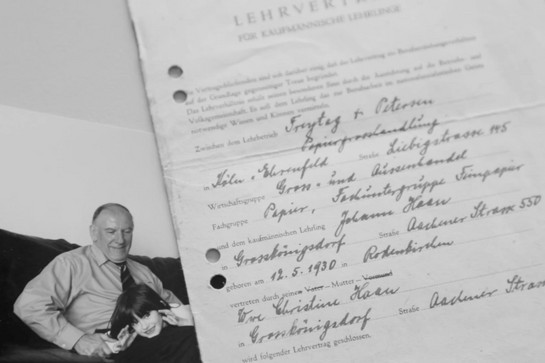 LEHRVERTRAG
FÜR KAUFMÄNNISCHE LEHRLINGE
auf der Grundlage gegenseitiger Treue begründet.
notwendige Wissen und Können vermitteln.
Zwischen dem Lehrbetrieb Freytag & Petersen
Papiergrosshandlung
in Köln-Ehrenfeld Straße Liebigstrasse 145
Wirtschaftsgruppe Gross- und Aussenhandel
Fachgruppe Papier, Fachuntergruppe Feinpapier
und dem kaufmännischen Lehrling Johann Haan
in Grosskönigsdorf Straße Aachener Strasse 550
geboren am 12.5.1930 in Rodenkirchen
vertreten durch seinen Vater - Mutter - Vormund
Eve Christine Haan
in Grosskönigsdorf Straße Aachener Strasse
wird folgender Lehrvertrag geschlossen.